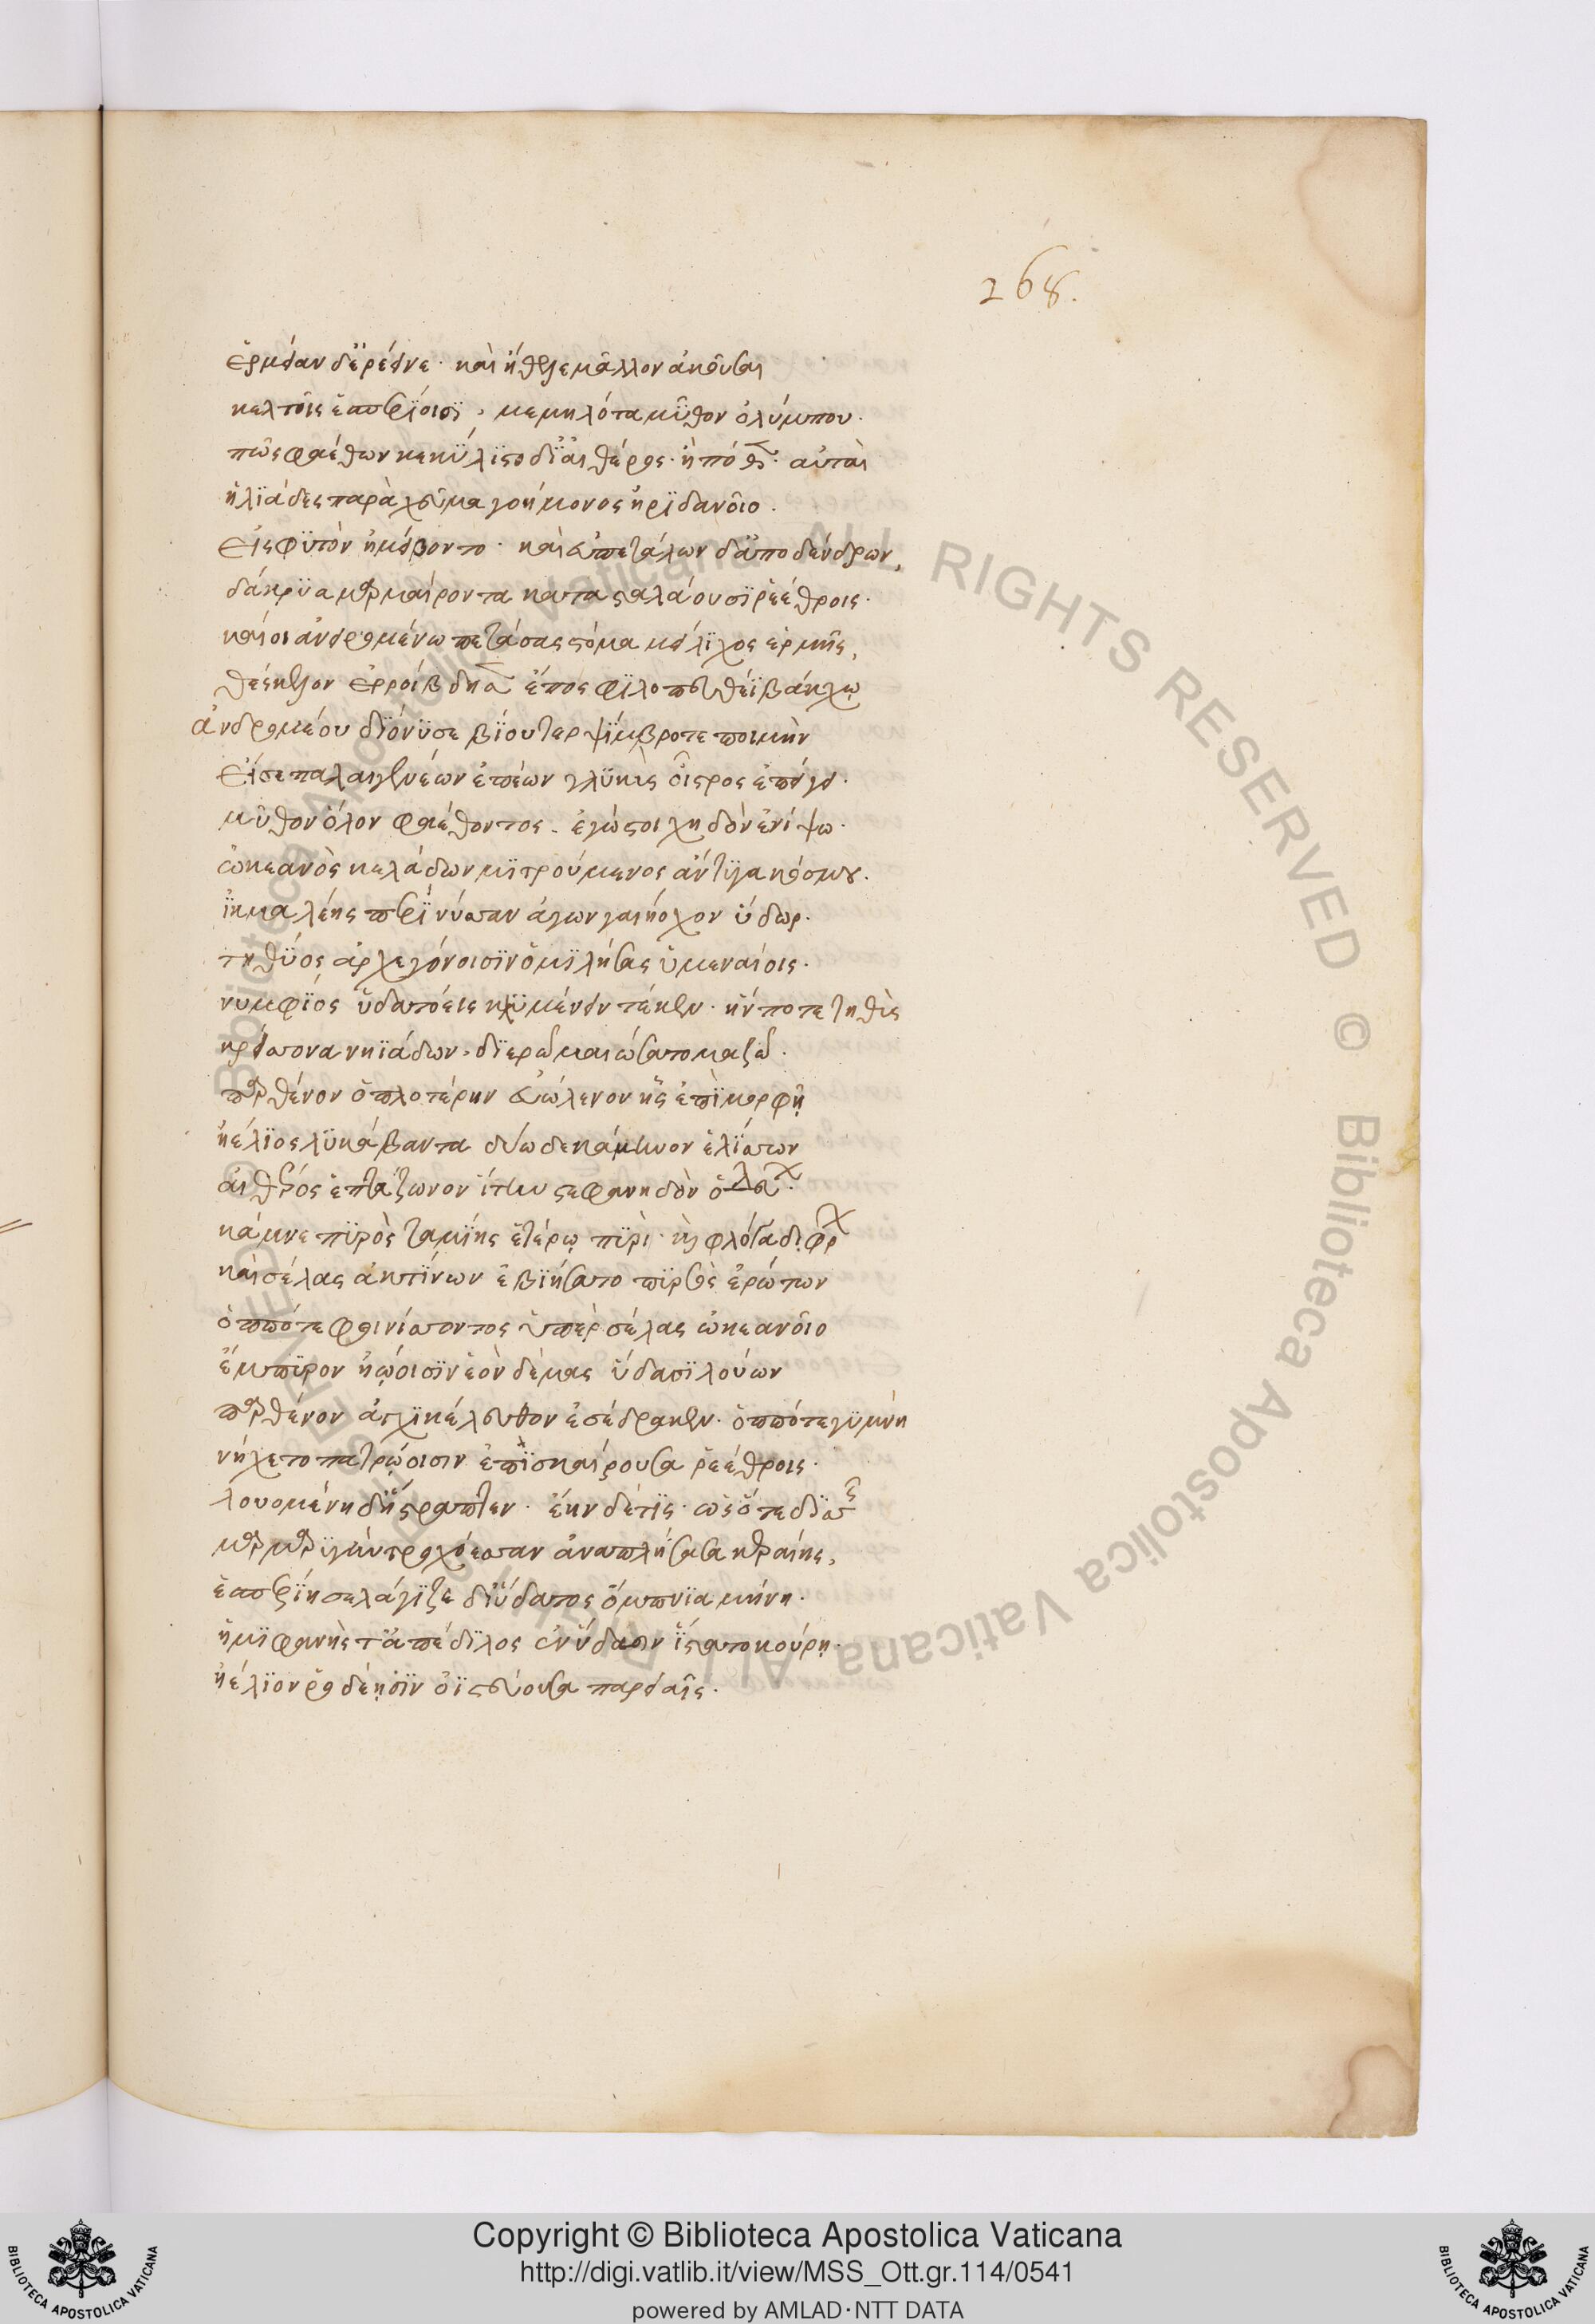 268.
ἑρμείαν δ' ἐρέεινε· καὶ ἤθελε μᾶλλον ἀκοῦσαι
κελτοῖς ἑσπερίοισι, μεμηλότα μῦθον ὀλύμπου·
πῶς φαέθων κεκύλιστο δι' αἰθέρος· ἢ πόθεν αὐταὶ
ἡλιάδες παρὰ χεῦμα γοήμονος ἠριδανοῖο.
εἰς φυτὸν ἠμείβοντο· καὶ εὐπετάλων δ' ἀπὸ δένδρων,
δάκρυα μαρμαίροντα κατασταλάουσι ῥεέθροις·
καί οἱ ἀνειρομένω πετάσας στόμα μείλιχος ἑρμῆς,
θέσκελον ἐρροίβδησεν ἔπος φιλοπευθέϊ βάκχῳ
ἀνδρομέου διόνυσε βίου τερψίμβροτε ποιμὴν
εἴ σε παλαιγενέων ἐπέων γλυκὺς οἶστρος ἐπείγει·
μῦθον ὅλον φαέθοντος ἐγὼ στοιχηδὸν ἐνίψω·
ὠκεανὸς κελάδων μιτρούμενος ἄντυγα κόσμου.
ἰκμαλέης περὶ νύσσαν ἄγων γαιήοχον ὕδωρ·
τηθύος ἀρχεγόνοισιν ὁμιλήσας ὑμεναίοις·
νυμφίος ὑδατόεις κλυμένην τέκεν· ἥν ποτε τηθὺς
κρείσσονα νηϊάδων· διερῷ μαιώσατο μαζῷ·
παρθένον ὁπλοτέρην εὐώλενον ἧς ἐπὶ μορφῇ
ἠέλιος λυκάβαντα δυωδεκάμηνον ἑλίσσων
αἰθέρος ἑπτάζωνον ἴτυν στεφανηδὸν ὁδεύων·
κάμνε πυρὸς ταμίης ἑτέρῳ πυρί· καὶ φλόγα δίφρων
καὶ σέλας ἀκτίνων ἐβιήσατο πυρσὸς ἐρώτων
ὁππότε φοινίσσοντος ὑπὲρ σέλας ὠκεανοῖο
ἔμπυρον ἠῴοισιν ἑὸν δέμας ὕδασι λούων
παρθένον ἀγχικέλευθον ἐσέδρακεν· ὁππότε γυμνὴ
νήχετο πατρῴοισιν ἐπισκαίρουσα ῥεέθροις·
λουομένη δ' ἤστραπτεν· ἔην δέ τις· ὡς ὅτε δισσῆς
μαρμαρυγὴν τροχόεσσαν ἀναπλήσασα κεραίης,
ἑσπερίη σελάγιζε δι' ὕδατος ὄμπνια μήνη·
ἡμιφανὴς τ' ἀπέδιλος ἐν ὕδασιν ἵστατο κούρη·
ἠέλιον ῥοδέῃσιν ὀϊστεύουσα παρειαῖς·
Copyright © Biblioteca Apostolica Vaticana
http://digi.vatlib.it/view/MSS_Ott.gr.114/0541
powered by AMLAD·NTT DATA
BIBLIOTECA APOSTOLICA VATICANA
BIBLIOTECA APOSTOLICA VATICANA
Biblioteca Apostolica Vaticana ALL RIGHTS RESERVED © Biblioteca Apostolica Vaticana ALL RIGHTS RESERVED ©